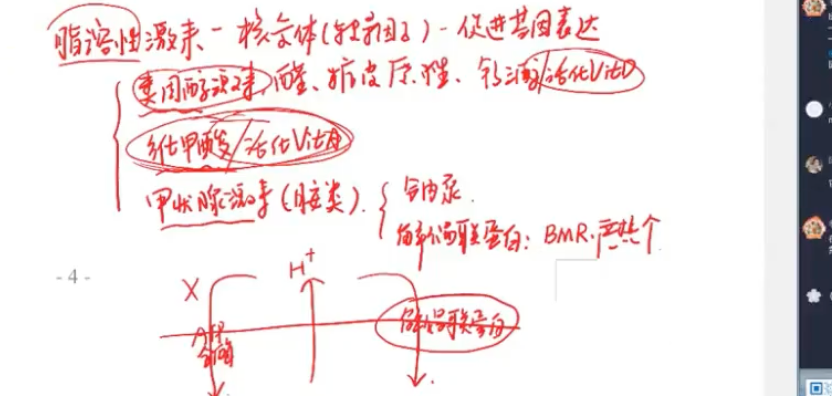 脂溶性激素 - 核受体(转录因子) - 促进基因表达
类固醇激素,醛、糖皮质、性、钙三醇/活化VitD
维甲酸/活化VitA
甲状腺激素(胺类). 钠钾泵.
解偶联蛋白: BMR.产热个
- 4 -
X H+
ATP合酶 解偶联蛋白